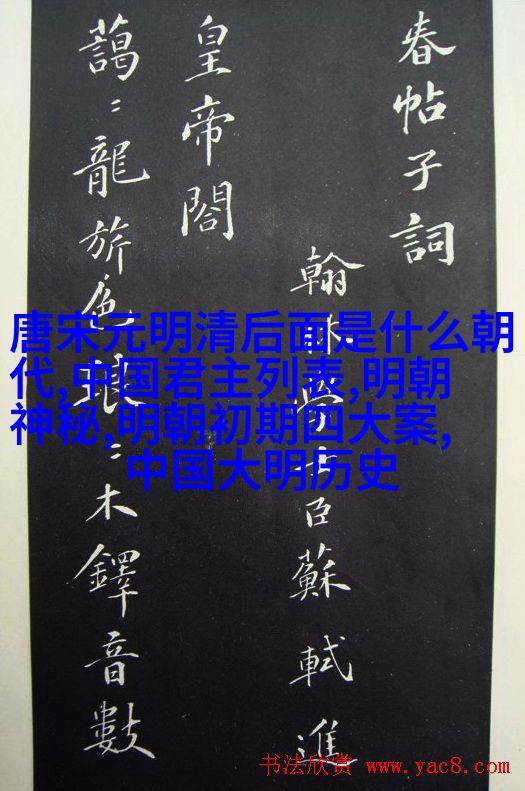 春帖子詞
翰林學士臣蘇軾進
皇帝閣
藹〻龍旂色琅〻木鐸音數
唐宋元明清后面是什么朝
代,中国君主列表,明朝
神秘,明朝初期四大案,
中国大明历史
书法欣赏 www.yac8.com